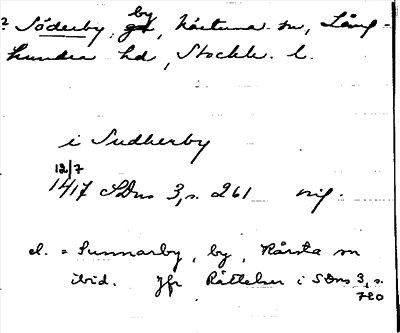 ? Söderby, by, Närtuna sn, Lång-
hundra hd, Stockh. l.
i Sudherby
12/7
1417 SDns 3, s. 261 orig.
el. = Sunnarby, by, Kårsta sn
ibid. Jfr Rättelser i SDns 3, s.
720